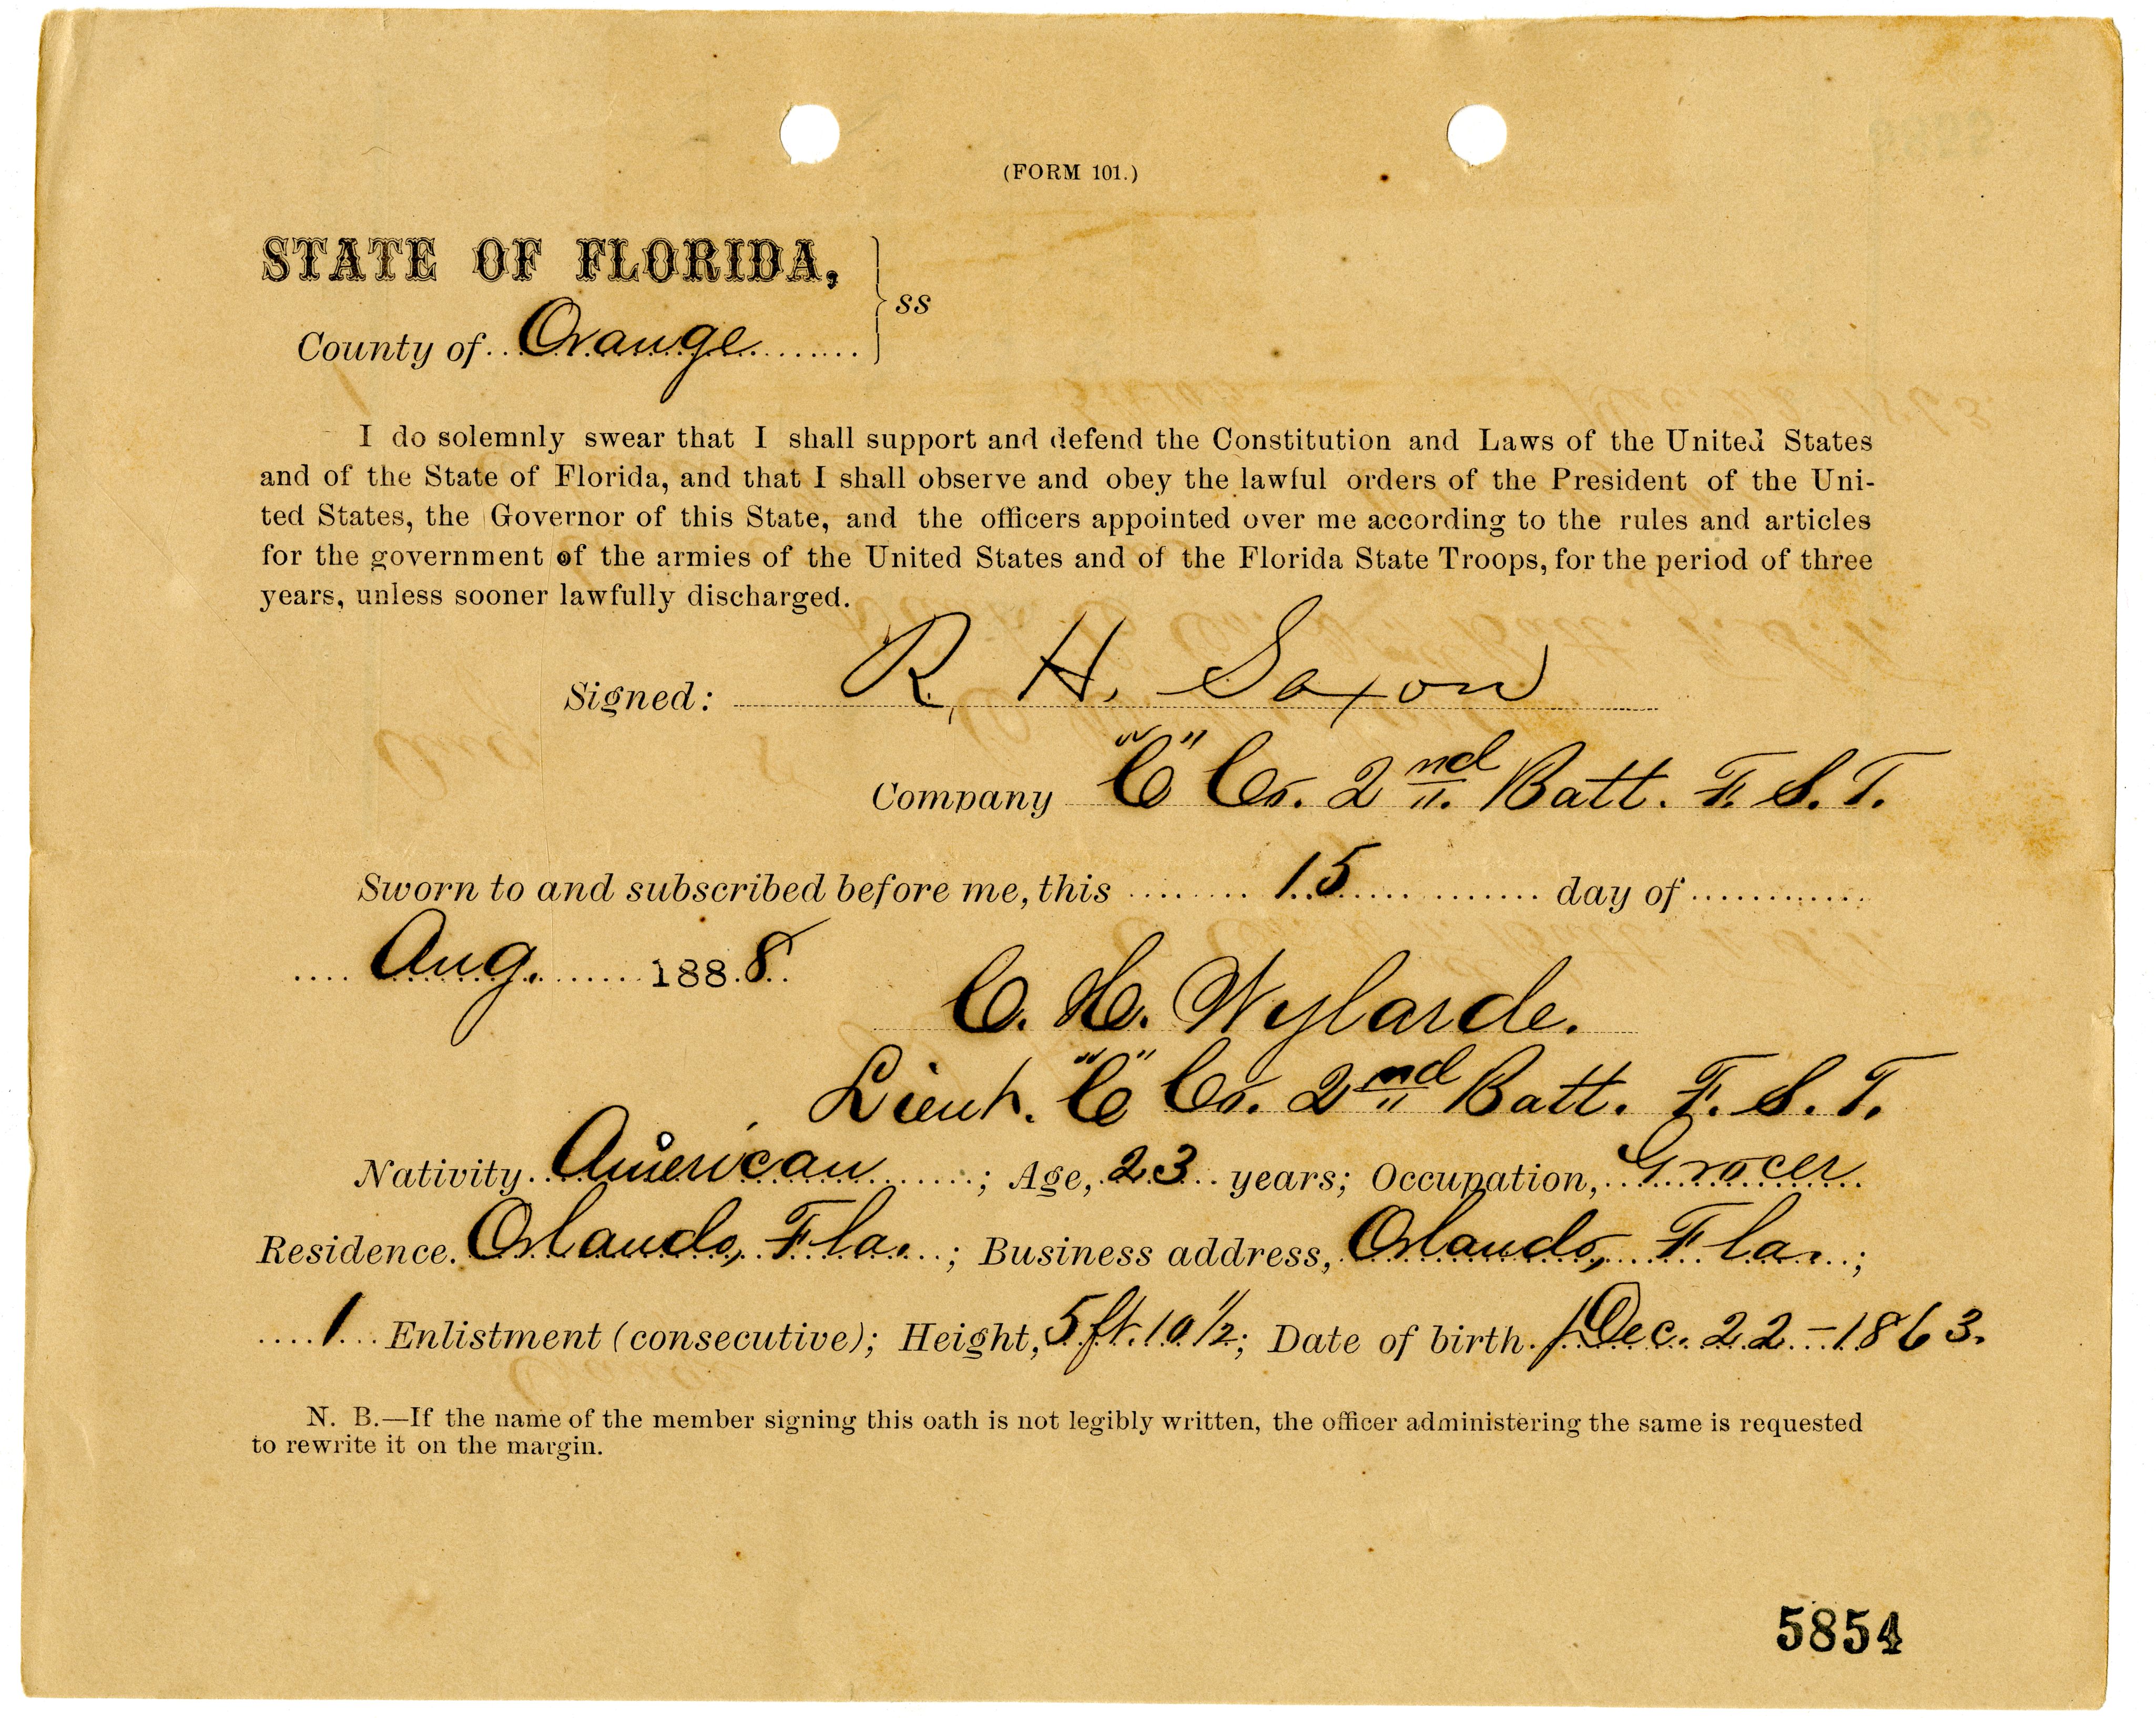 (FORM 101.)
STATE OF FLORIDA,
County of Orange ss
I do solemnly swear that I shall support and defend the Constitution and Laws of the United States
and of the State of Florida, and that I shall observe and obey the lawful orders of the President of the Uni-
ted States, the Governor of this State, and the officers appointed over me according to the rules and articles
for the government of the armies of the United States and of the Florida State Troops, for the period of three
years, unless sooner lawfully discharged.
Signed: R. H. Saxon
Company "C" Co. 2nd Batt. F. S. T.
Sworn to and subscribed before me, this 15 day of
Aug. 1888
C. H. Wylarde.
Lieut. "C" Co. 2nd Batt. F. S. T.
Nativity American; Age, 23 years; Occupation, Grocer
Residence. Orlando, Fla.; Business address, Orlando, Fla.;
1 Enlistment (consecutive); Height, 5 ft. 10 1/2; Date of birth. Dec. 22 - 1863.
N. B.—If the name of the member signing this oath is not legibly written, the officer administering the same is requested
to rewrite it on the margin.
5854